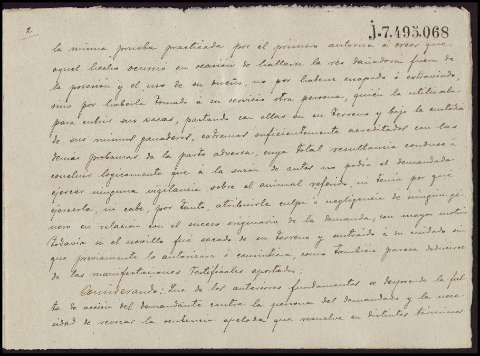 2
j.7.495.068
la misma prueba practicada por el primero autoriza á creer que
aquel hecho ocurrió en ocasión de hallarse la res dañadora fuera de
la posesión y el uso de su dueño, no por haberse escapado ó extraviado,
sino por haberla tomado á su servicio otra persona, quien la utilizaba
para cubrir sus vacas, pastando con ellas en su terreno y bajo la custodia
de sus mismos ganaderos, extremos suficientemente acreditados con las
demas probanzas de la parte adversa, cuya total resultancia conduce á
concluir lógicamente que á la sazón de autos no podía el demandado
ejercer ninguna vigilancia sobre el animal referido, ni tenía por qué
ejercerla, ni cabe, por tanto, atribuirle culpa ó negligencia de ningun gé-
nero en relación con el suceso originario de la demanda, con mayor motivo
todavía si el novillo fué sacado de su terreno y sustraido á su cuidado sin
que previamente lo autorizara ó consintiera, como tambien parece deducirse
de las manifestaciones testificales aportadas;
Considerando: Que de los anteriores fundamentos se desprende la fal-
ta de acción del demandante contra la persona del demandado y la nece-
sidad de revocar la sentencia apelada que resuelve en distintos términos